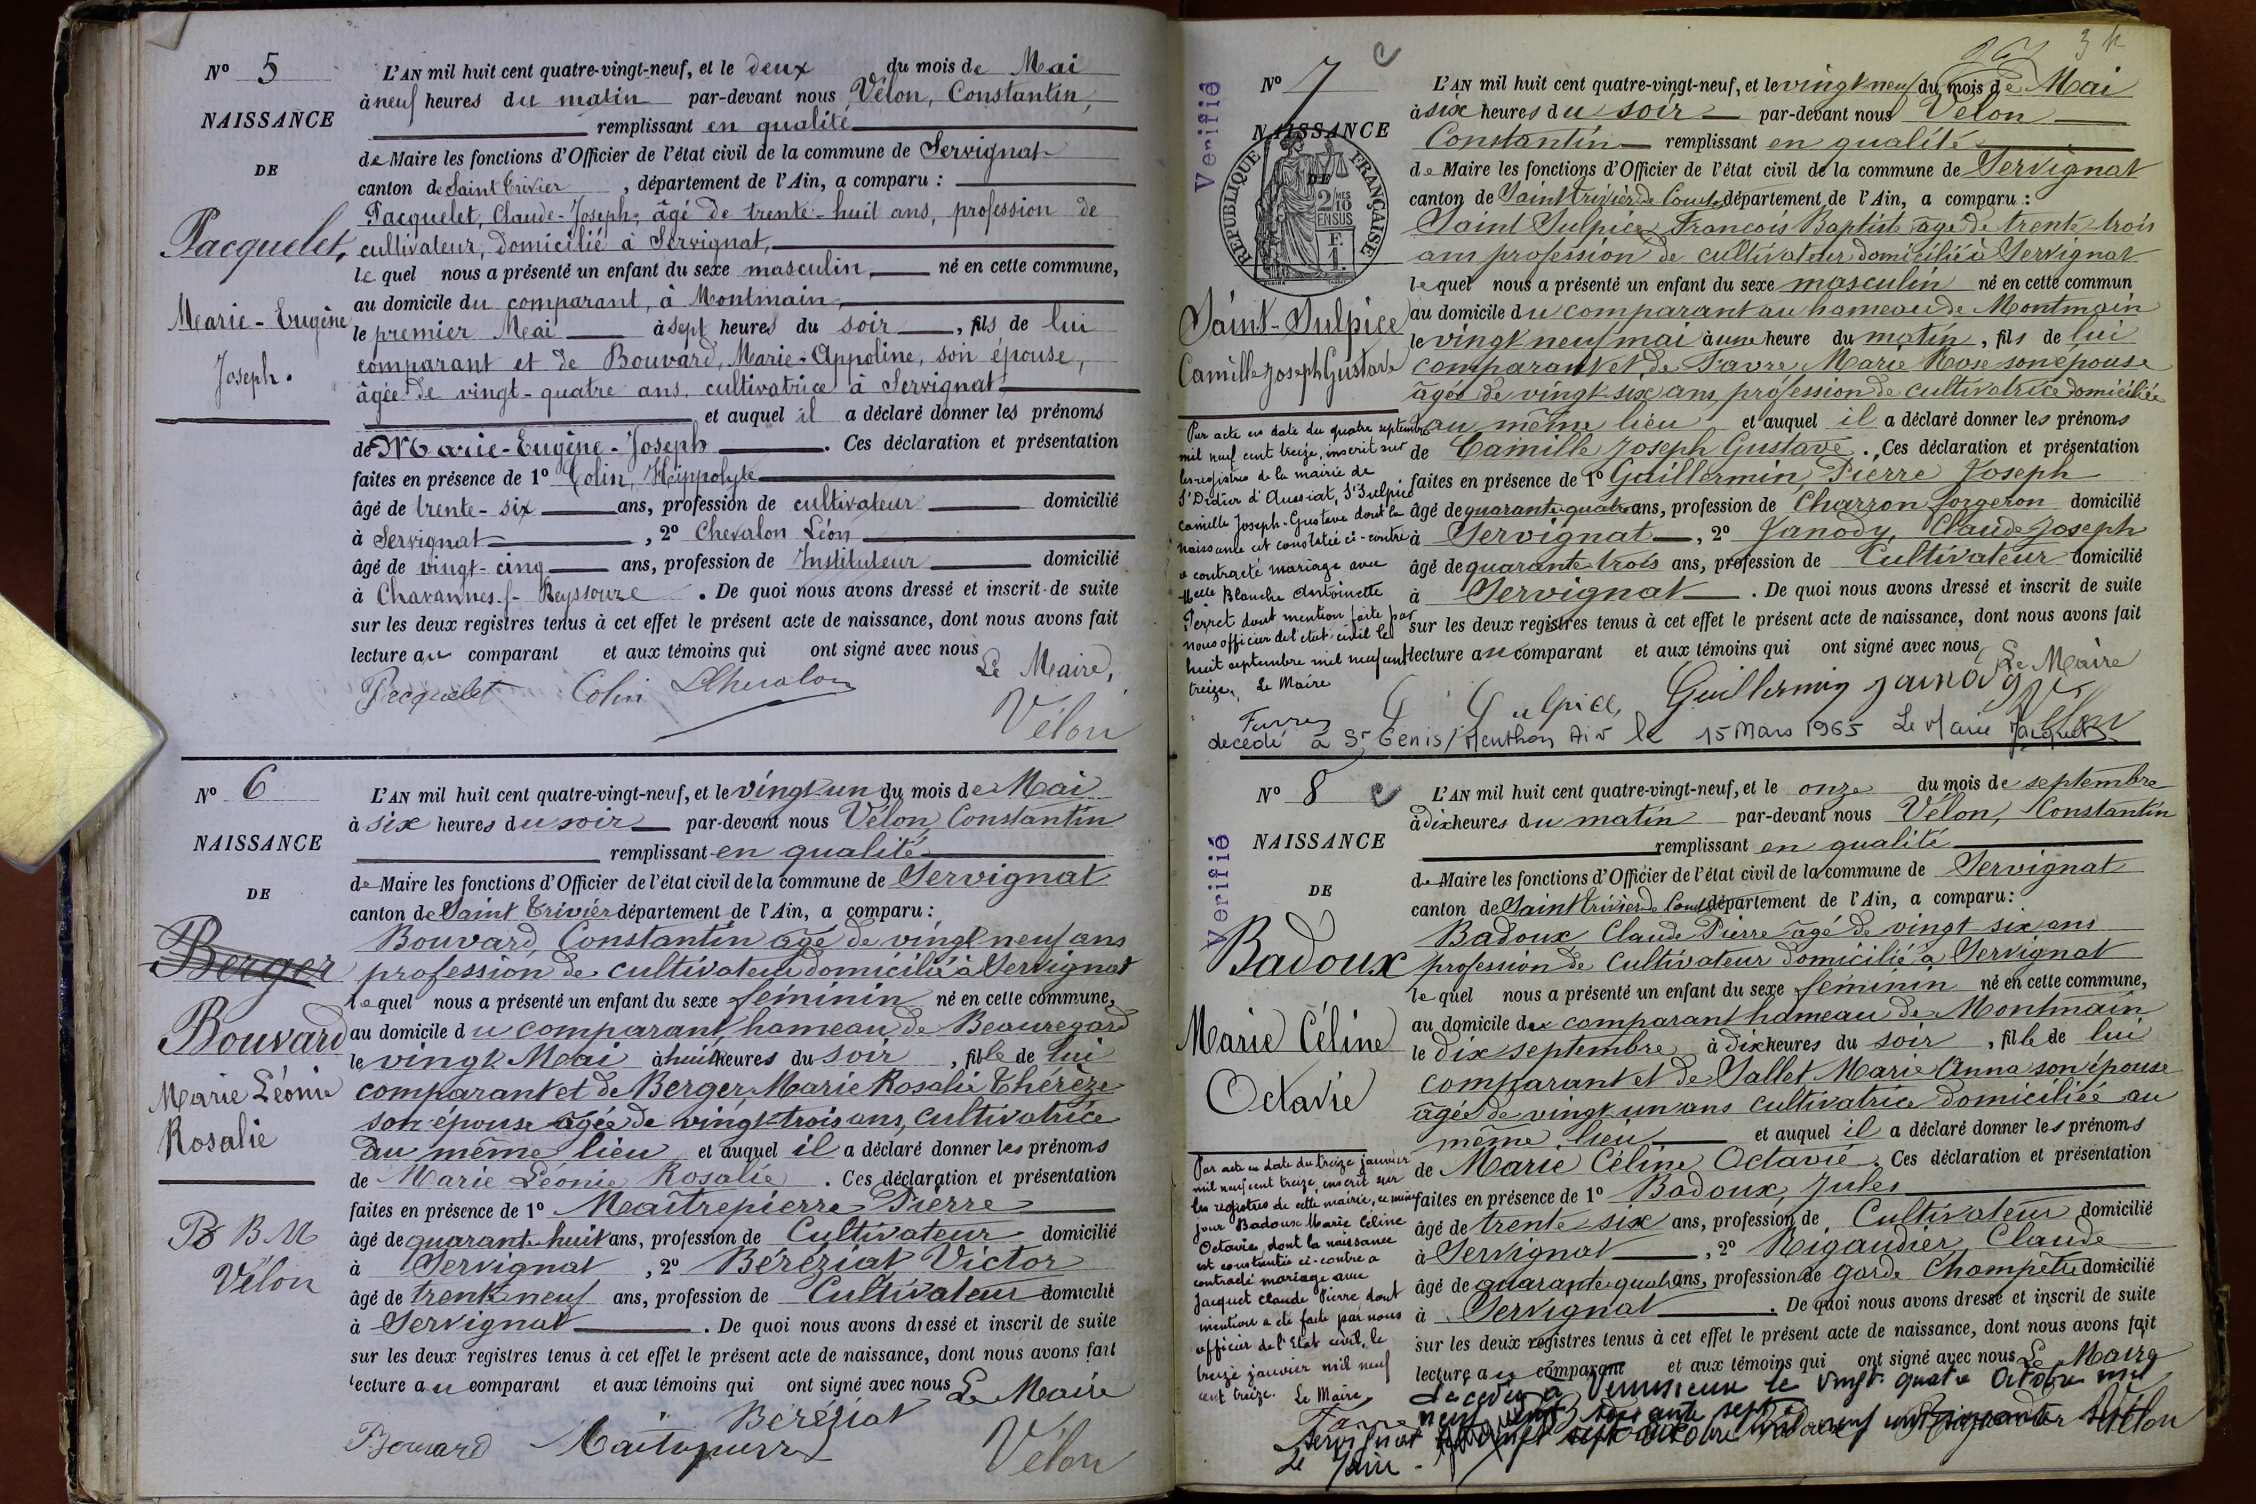 N° 5
NAISSANCE
DE
Pacquelet,
Marie-Eugène
Joseph.
L'AN mil huit cent quatre-vingt-neuf, et le deux du mois de Mai
à neuf heures du matin par-devant nous Vélon, Constantin,
remplissant en qualité
de Maire les fonctions d'Officier de l'état civil de la commune de Servignat
canton de Saint Trivier, département de l'Ain, a comparu :
Pacquelet, Claude-Joseph, âgé de trente-huit ans, profession de
cultivateur, domicilié à Servignat,
le quel nous a présenté un enfant du sexe masculin, né en cette commune,
au domicile du comparant, à Montmain,
le premier Mai à sept heures du soir, fils de lui
comparant et de Bouvard, Marie-Appoline, son épouse,
âgée de vingt-quatre ans, cultivatrice à Servignat
et auquel il a déclaré donner les prénoms
de Marie-Eugène-Joseph. Ces déclaration et présentation
faites en présence de 1° Colin, Hippolyte
âgé de trente-six ans, profession de cultivateur domicilié
à Servignat, 2° Chevalon Léon
âgé de vingt-cinq ans, profession de Instituteur domicilié
à Chavannes s- Reyssouze. De quoi nous avons dressé et inscrit de suite
sur les deux registres tenus à cet effet le présent acte de naissance, dont nous avons fait
lecture au comparant et aux témoins qui ont signé avec nous
Le Maire,
Pacquelet Colin LChevalon
Vélon
N° 6
NAISSANCE
DE
Berger
Bouvard
Marie Léonie
Rosalie
B M
Vélon
L'AN mil huit cent quatre-vingt-neuf, et le vingt un du mois de Mai
à six heures du soir par-devant nous Vélon, Constantin
remplissant en qualité
de Maire les fonctions d'Officier de l'état civil de la commune de Servignat
canton de Saint Trivier département de l'Ain, a comparu :
Bouvard, Constantin âgé de vingt neuf ans
profession de cultivateur domicilié à Servignat
le quel nous a présenté un enfant du sexe féminin né en cette commune,
au domicile du comparant, hameau de Beauregard
le vingt Mai à huit heures du soir, fille de lui
comparant et de Berger Marie Rosalie Thérèze
son épouse âgée de vingt trois ans, cultivatrice
au même lieu et auquel il a déclaré donner les prénoms
de Marie Léonie Rosalie. Ces déclaration et présentation
faites en présence de 1° Maîtrepierre Pierre
âgé de quarante huit ans, profession de Cultivateur domicilié
à Servignat, 2° Béréziat Victor
âgé de trente neuf ans, profession de Cultivateur domicilié
à Servignat. De quoi nous avons dressé et inscrit de suite
sur les deux registres tenus à cet effet le présent acte de naissance, dont nous avons fait
lecture au comparant et aux témoins qui ont signé avec nous Le Maire
Béréziat
Bouvard Maitrepierre
Vélon
N° 7
Verifié
NAISSANCE
DE
REPUBLIQUE FRANÇAISE
2/10 MES
EN SUS
F.
1.
Saint-Sulpice
Camille Joseph Gustave
Par acte en date du quatre septembre
mil neuf cent treize, inscrit sur
les registres de la mairie de
St Didier d'Aussiat, St Sulpice
Camille Joseph-Gustave dont la
naissance est constatée ci-contre
a contracté mariage avec
Melle Blanche Antoinette
Perret dont mention faite par
nous officier de l'état civil le
huit septembre mil neuf cent
treize. Le Maire
L'AN mil huit cent quatre-vingt-neuf, et le vingt neuf du mois de Mai
à six heures du soir par-devant nous Vélon
Constantin remplissant en qualité
de Maire les fonctions d'Officier de l'état civil de la commune de Servignat
canton de Saint Trivier de Courtes département de l'Ain, a comparu :
Saint Sulpice François Baptiste âgé de trente trois
ans profession de cultivateur domicilié à Servignat
le quel nous a présenté un enfant du sexe masculin né en cette commun
au domicile du comparant au hameau de Montmain
le vingt neuf mai à une heure du matin, fils de lui
comparant et de Favre, Marie Rose son épouse
âgée de vingt six ans, profession de cultivatrice domiciliée
au même lieu et auquel il a déclaré donner les prénoms
de Camille Joseph Gustave. Ces déclaration et présentation
faites en présence de 1° Guillermin, Pierre Joseph
âgé de quarante quatre ans, profession de Charron forgeron domicilié
à Servignat, 2° Janody, Claude Joseph
âgé de quarante trois ans, profession de Cultivateur domicilié
à Servignat. De quoi nous avons dressé et inscrit de suite
sur les deux registres tenus à cet effet le présent acte de naissance, dont nous avons fait
lecture au comparant et aux témoins qui ont signé avec nous
Le Maire
Guillermin Janody
Vélon
décédé à St Genis/Menthon Ain le 15 Mars 1965 Le Maire
N° 8
Verifié
NAISSANCE
DE
Badoux
Marie Céline
Octavie
Par acte en date du treize janvier
mil neuf cent treize, inscrit sur
les registres de cette mairie, ce même
jour Badoux Marie Céline
Octavie, dont la naissance
est constatée ci-contre a
contracté mariage avec
Jacquet Claude Pierre dont
mention a été faite par nous
officier de l'Etat civil, le
treize janvier mil neuf
cent treize. Le Maire,
L'AN mil huit cent quatre-vingt-neuf, et le onze du mois de septembre
à dix heures du matin par-devant nous Vélon, Constantin
remplissant en qualité
de Maire les fonctions d'Officier de l'état civil de la commune de Servignat
canton de Saint Trivier de Courtes département de l'Ain, a comparu :
Badoux Claude Pierre âgé de vingt six ans
profession de cultivateur domicilié à Servignat
le quel nous a présenté un enfant du sexe féminin né en cette commune,
au domicile du comparant hameau de Montmain
le dix septembre à dix heures du soir, fille de lui
comparant et de Sallet Marie Anna son épouse
âgée de vingt un ans cultivatrice domiciliée au
même lieu et auquel il a déclaré donner les prénoms
de Marie Céline Octavie. Ces déclaration et présentation
faites en présence de 1° Badoux, Jules
âgé de trente six ans, profession de Cultivateur domicilié
à Servignat, 2° Rigaudier, Claude
âgé de quarante quatre ans, profession de garde Champêtre domicilié
à Servignat. De quoi nous avons dressé et inscrit de suite
sur les deux registres tenus à cet effet le présent acte de naissance, dont nous avons fait
lecture au comparant et aux témoins qui ont signé avec nous Le Maire
décédée à le vingt quatre Octobre mil
neuf cent soixante sept
Servignat
Vélon
Le Maire